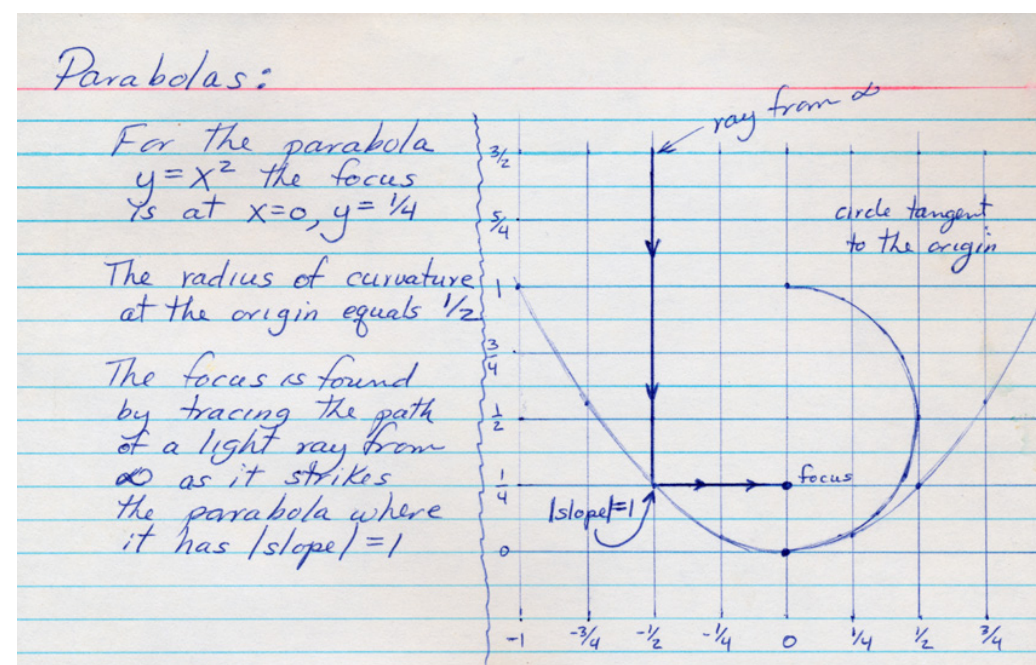 Parabolas:
For the parabola
y = x² the focus
is at x=0, y = 1/4
The radius of curvature
at the origin equals 1/2
The focus is found
by tracing the path
of a light ray from
∞ as it strikes
the parabola where
it has |slope| = 1
ray from ∞
circle tangent
to the origin
focus
|slope|=1
3/2
5/4
1
3/4
1/2
1/4
0
-1 -3/4 -1/2 -1/4 0 1/4 1/2 3/4